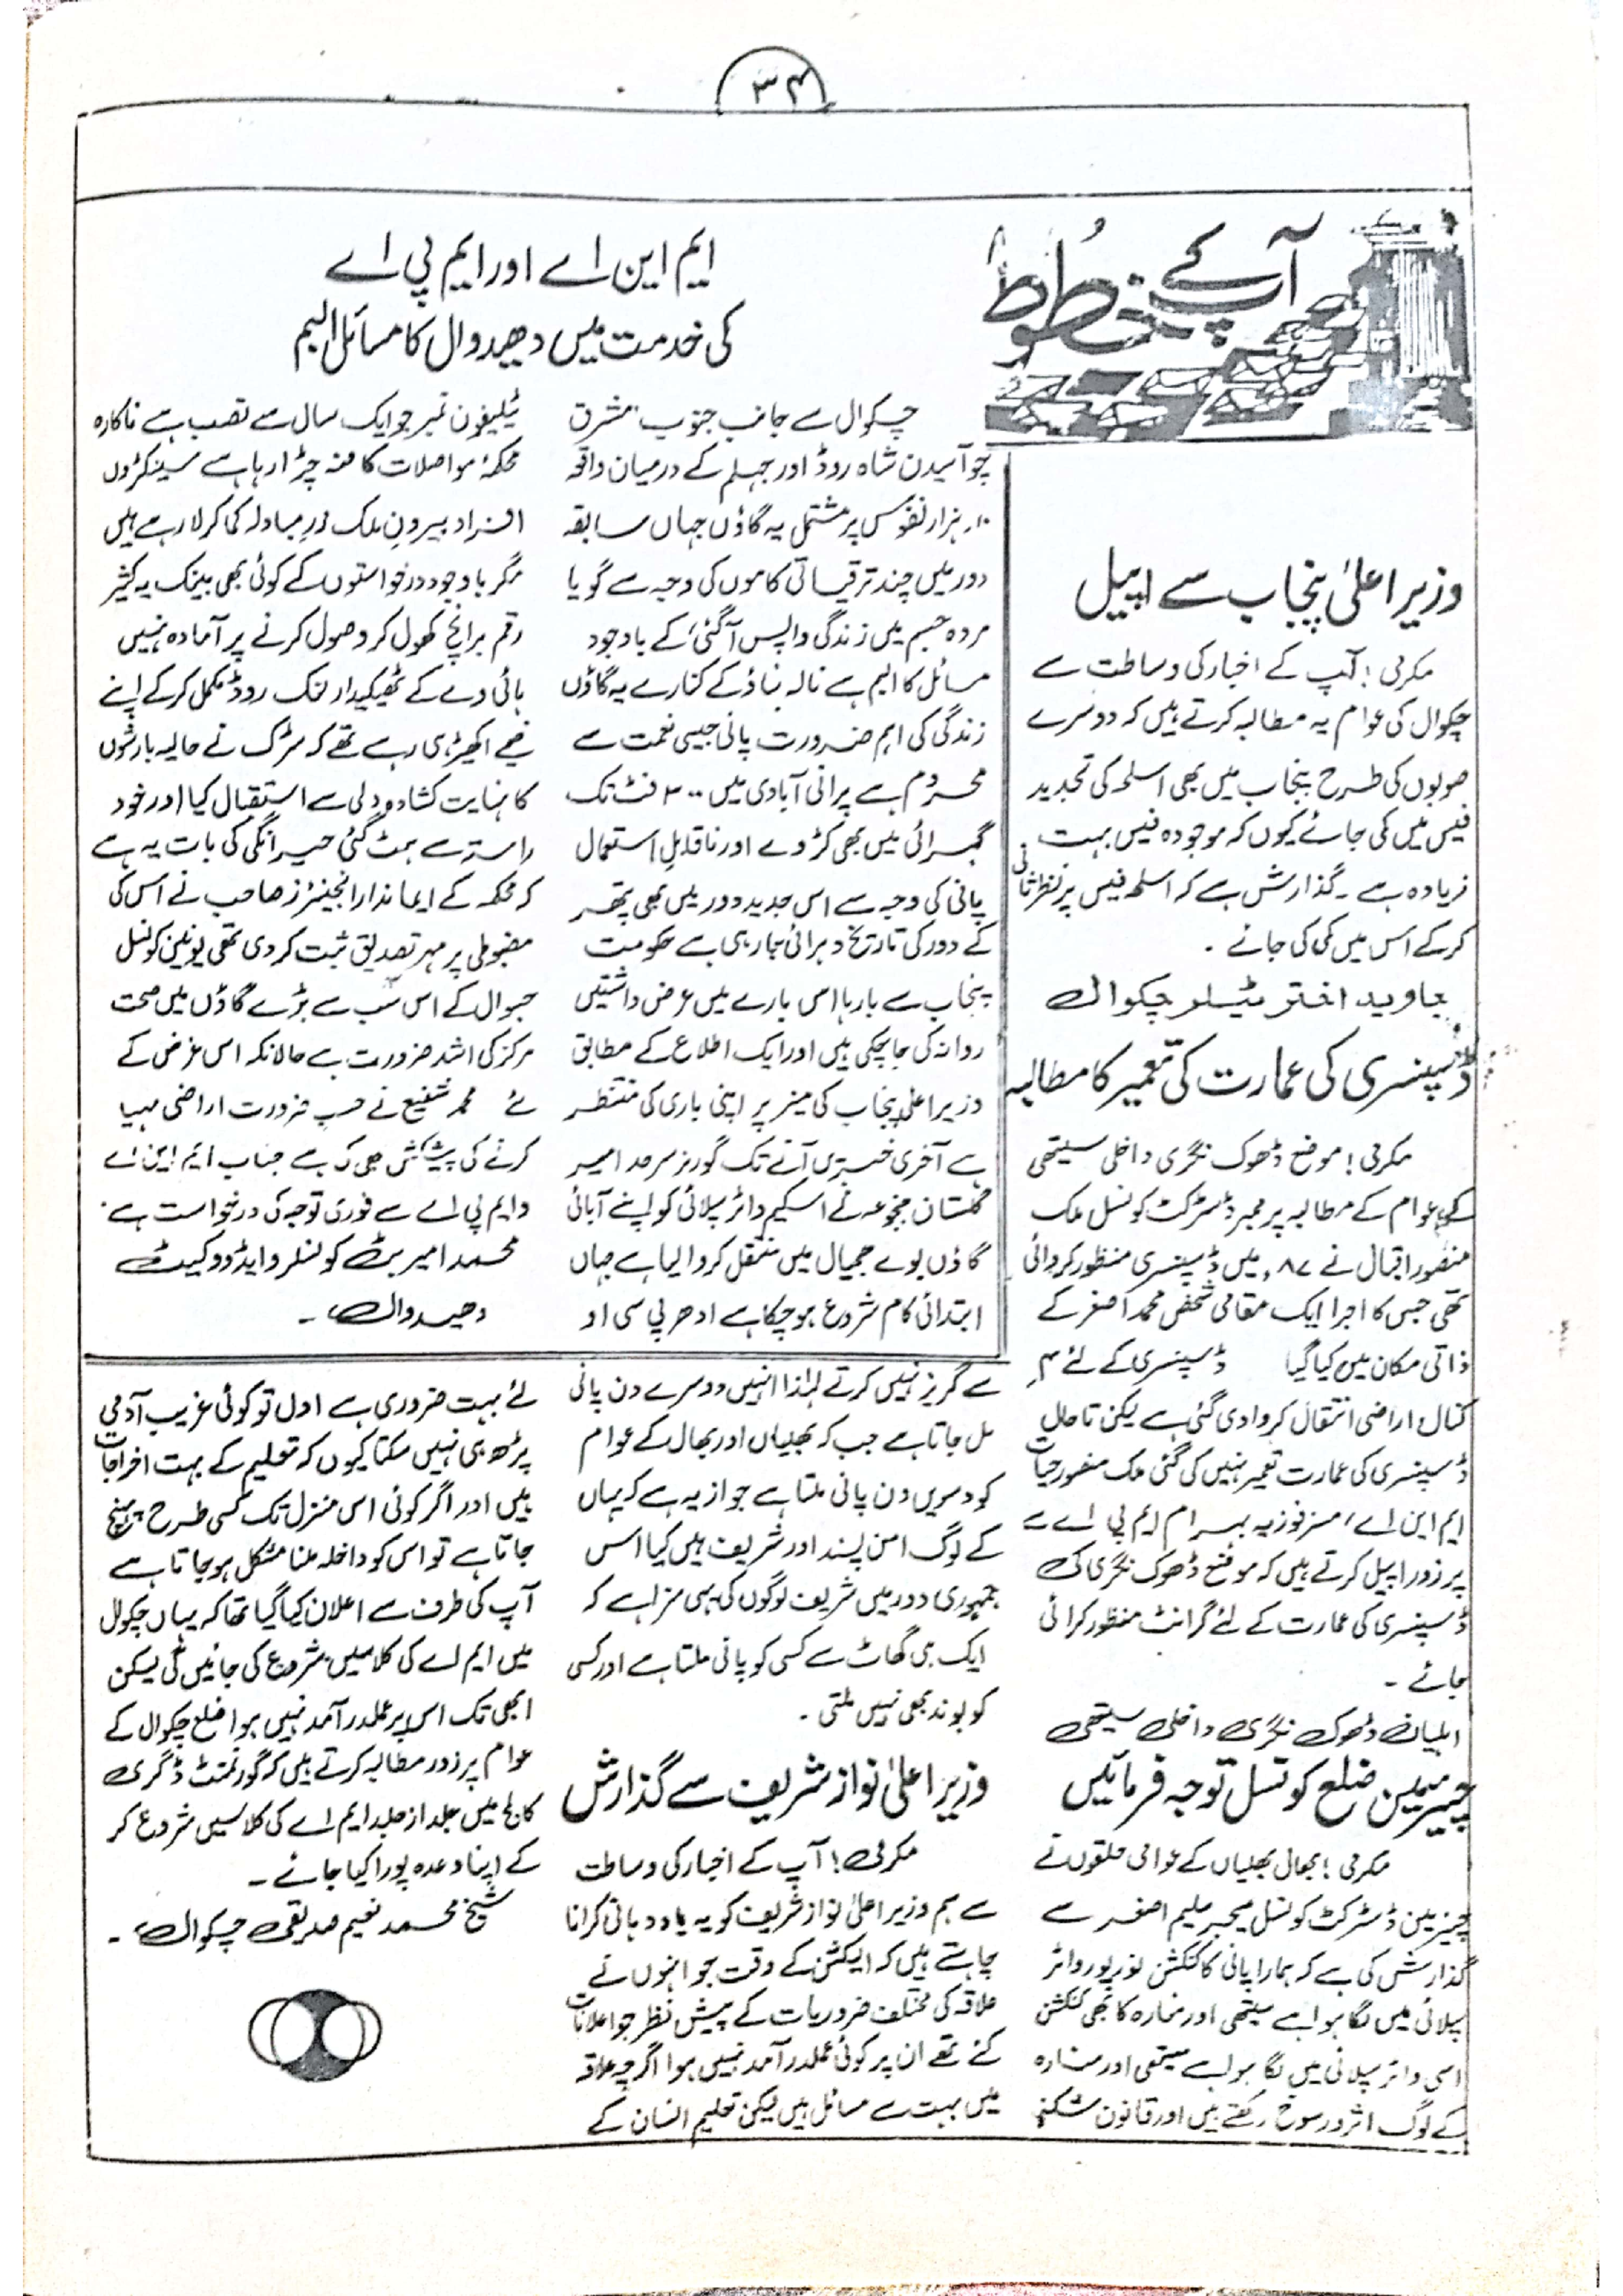 ۳۴
آپ کے خطوط
وزیر اعلیٰ پنجاب سے اپیل
مکرمی! آپ کے اخبار کی وساطت سے
چکوال کی عوام یہ مطالبہ کرتے ہیں کہ دوسرے
صوبوں کی طرح پنجاب میں بھی اسلحہ کی تجدید
فیس میں کی جائے کیوں کہ موجودہ فیس بہت
زیادہ ہے ۔ گذارش ہے کہ اسلحہ فیس پر نظر ثانی
کرکے اس میں کمی کی جائے ۔
جاوید اختر ٹیلر چکوال
ڈسپنسری کی عمارت کی تعمیر کا مطالبہ
مکرمی! موضع ڈھوک نگری داخلی سیتھی
کے عوام کے مطالبہ پر ممبر ڈسٹرکٹ کونسل ملک
منظور اقبال نے ۸۷ء میں ڈسپنسری منظور کروائی
تھی جس کا اجرا ایک مقامی شخص محمد اصغر کے
ذاتی مکان میں کیا گیا ڈسپنسری کے لئے ۴
کنال اراضی انتقال کروا دی گئی ہے لیکن تاحال
ڈسپنسری کی عمارت تعمیر نہیں کی گئی ملک منظور حیات
ایم این اے، مسز فوزیہ بہرام ایم پی اے سے
پر زور اپیل کرتے ہیں کہ موضع ڈھوک نگری کی
ڈسپنسری کی عمارت کے لئے گرانٹ منظور کرائی
جائے ۔
اہلیان ڈھوک نگری داخلی سیتھی
چیرمین ضلع کونسل توجہ فرمائیں
مکرمی! بھال بھلیاں کے عوامی حلقوں نے
چیئرمین ڈسٹرکٹ کونسل میجر سلیم اصغر سے
گذارش کی ہے کہ ہمارا پانی کا کنکشن نورپور واٹر
سپلائی میں لگا ہوا ہے سیتھی اور منارہ کا بھی کنکشن
اسی واٹر سپلائی میں لگا ہوا ہے سیتھی اور منارہ
کے لوگ اثر و رسوخ رکھتے ہیں اور قانون شکنی
ایم این اے اور ایم پی اے
کی خدمت میں دھیدوال کا مسائل البم
چکوال سے جانب جنوب مشرق
چوآسیدن شاہ روڈ اور جہلم کے درمیان واقع
۱۰ ہزار نفوس پر مشتمل یہ گاؤں جہاں سابقہ
دور میں چند ترقیاتی کاموں کی وجہ سے گویا
مردہ جسم میں زندگی واپس آگئی، کے باوجود
مسائل کا البم ہے نالہ بناؤ کے کنارے یہ گاؤں
زندگی کی اہم ضرورت پانی جیسی نعمت سے
محروم ہے پرانی آبادی میں ۳۰۰ فٹ تک
گہرائی میں بھی کڑوے اور ناقابل استعمال
پانی کی وجہ سے اس جدید دور میں بھی پتھر
کے دور کی تاریخ دہرائی جا رہی ہے حکومت
پنجاب سے بارہا اس بارے میں عرض داشتیں
روانہ کی جاچکی ہیں اور ایک اطلاع کے مطابق
وزیر اعلیٰ پنجاب کی میز پر اپنی باری کی منتظر
ہے آخری خبریں آنے تک گورنر سرحد امیر
گلستان جنجوعہ نے اسکیم واٹر سپلائی کو اپنے آبائی
گاؤں بوے جمیال میں منتقل کروا لیا ہے جہاں
ابتدائی کام شروع ہوچکا ہے ادھر پی سی او
ٹیلیفون نمبر جو ایک سال سے نصب ہے ناکارہ
محکمۂ مواصلات کا منہ چڑا رہا ہے سینکڑوں
افراد بیرون ملک زر مبادلہ کما کر لا رہے ہیں
مگر باوجود درخواستوں کے کوئی بھی بینک یہ کثیر
رقم برانچ کھول کر وصول کرنے پر آمادہ نہیں
ہائی وے کے ٹھیکیدار لنک روڈ مکمل کرکے اپنے
خیمے اکھیڑ ہی رہے تھے کہ سڑک نے حالیہ بارشوں
کا نہایت کشادہ دلی سے استقبال کیا اور خود
راستہ سے ہٹ گئی حیرانگی کی بات یہ ہے
کہ محکمہ کے ایماندار انجینئرز صاحب نے اس کی
مضبوطی پر مہر تصدیق ثبت کر دی تھی یونین کونسل
جبوال کے اس سب سے بڑے گاؤں میں صحت
مرکز کی اشد ضرورت ہے حالانکہ اس غرض کے
لئے محمد شفیع نے حسب ضرورت اراضی مہیا
کرنے کی پیشکش بھی کی ہے جناب ایم این اے
و ایم پی اے سے فوری توجہ کی درخواست ہے۔
محمد امیر بٹ کونسلر و ایڈووکیٹ
دھیدوال ۔
سے گریز نہیں کرتے لہٰذا انہیں دوسرے دن پانی
مل جاتا ہے جب کہ بھلیاں اور بھال کے عوام
کو دسویں دن پانی ملتا ہے جواز یہ ہے کہ یہاں
کے لوگ امن پسند اور شریف ہیں کیا اس
جمہوری دور میں شریف لوگوں کی یہی سزا ہے کہ
ایک ہی گھاٹ سے کسی کو پانی ملتا ہے اور کسی
کو بوند بھی نہیں ملتی ۔
وزیر اعلیٰ نواز شریف سے گذارش
مکرمی! آپ کے اخبار کی وساطت
سے ہم وزیر اعلیٰ نواز شریف کو یہ یاد دہانی کرانا
چاہتے ہیں کہ الیکشن کے وقت جو انہوں نے
علاقہ کی مختلف ضروریات کے پیش نظر جو اعلانات
کئے تھے ان پر کوئی عملدرآمد نہیں ہوا اگرچہ علاقہ
میں بہت سے مسائل ہیں لیکن تعلیم انسان کے
لئے بہت ضروری ہے اول تو کوئی غریب آدمی
پڑھ ہی نہیں سکتا کیوں کہ تعلیم کے بہت اخراجات
ہیں اور اگر کوئی اس منزل تک کسی طرح پہنچ
جاتا ہے تو اس کو داخلہ ملنا مشکل ہوجاتا ہے
آپ کی طرف سے اعلان کیا گیا تھا کہ یہاں چکوال
میں ایم اے کی کلاسیں شروع کی جائیں گی لیکن
ابھی تک اس پر عملدرآمد نہیں ہوا ضلع چکوال کے
عوام پر زور مطالبہ کرتے ہیں کہ گورنمنٹ ڈگری
کالج میں جلد از جلد ایم اے کی کلاسیں شروع کر
کے اپنا وعدہ پورا کیا جائے ۔
شیخ محمد نعیم صدیقی چکوال ۔